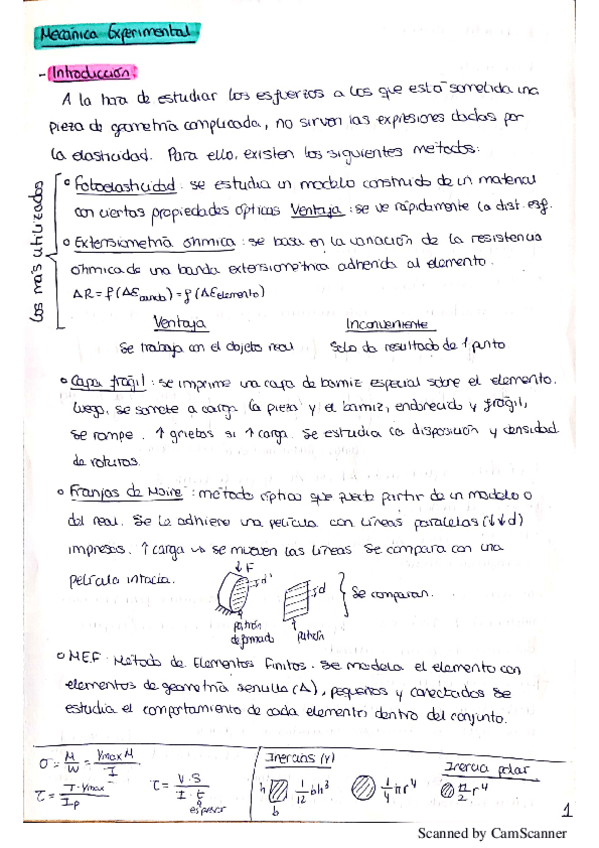 Mecánica Experimental
- Introducción:
A la hora de estudiar los esfuerzos a los que está sometida una
pieza de geometría complicada, no sirven las expresiones dadas por
la elasticidad. Para ello, existen los siguientes métodos:
Los más utilizados
Fotoelasticidad: se estudia un modelo construido de un material
con ciertas propiedades ópticas Ventaja: se ve rápidamente la dist. esf.
Extensiometría óhmica: se basa en la variación de la resistencia
óhmica de una banda extensiométrica adherida al elemento.
ΔR = f(Δε banda) = f(Δε elemento)
Ventaja Inconveniente
Se trabaja con el objeto real Solo da resultado de 1 punto
Capa frágil: se imprime una capa de barniz especial sobre el elemento.
Luego, se somete a carga la pieza y el barniz, endurecido y frágil,
se rompe. ↑ grietas si ↑ carga. Se estudia la disposición y densidad
de roturas.
Franjas de Moire: método óptico que puede partir de un modelo o
del real. Se le adhiere una película con líneas paralelas (↓↓d)
impresas. ↑ carga → se mueven las líneas Se compara con una
película intacta.
↓F
d'
d
Se comparan.
patrón
deformado
patrón
MEF: Método de Elementos Finitos. Se modela el elemento con
elementos de geometría sencilla (Δ), pequeños y conectados Se
estudia el comportamiento de cada elemento dentro del conjunto.
σ = M/W = Ymax M/I
τ = T·Ymax/Ip
τ = V·S/I·t
espesor
Inercias (Y)
h b 1/12 bh³
1/4 πr⁴
Inercia polar
π/2 r⁴
1
Scanned by CamScanner